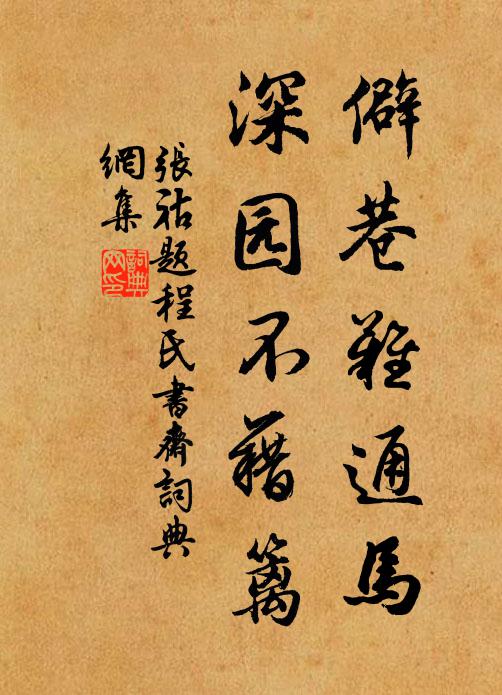 僻巷難通馬
深园不藉篱
張祜題程氏書齋詞典
網集
詞典
网印